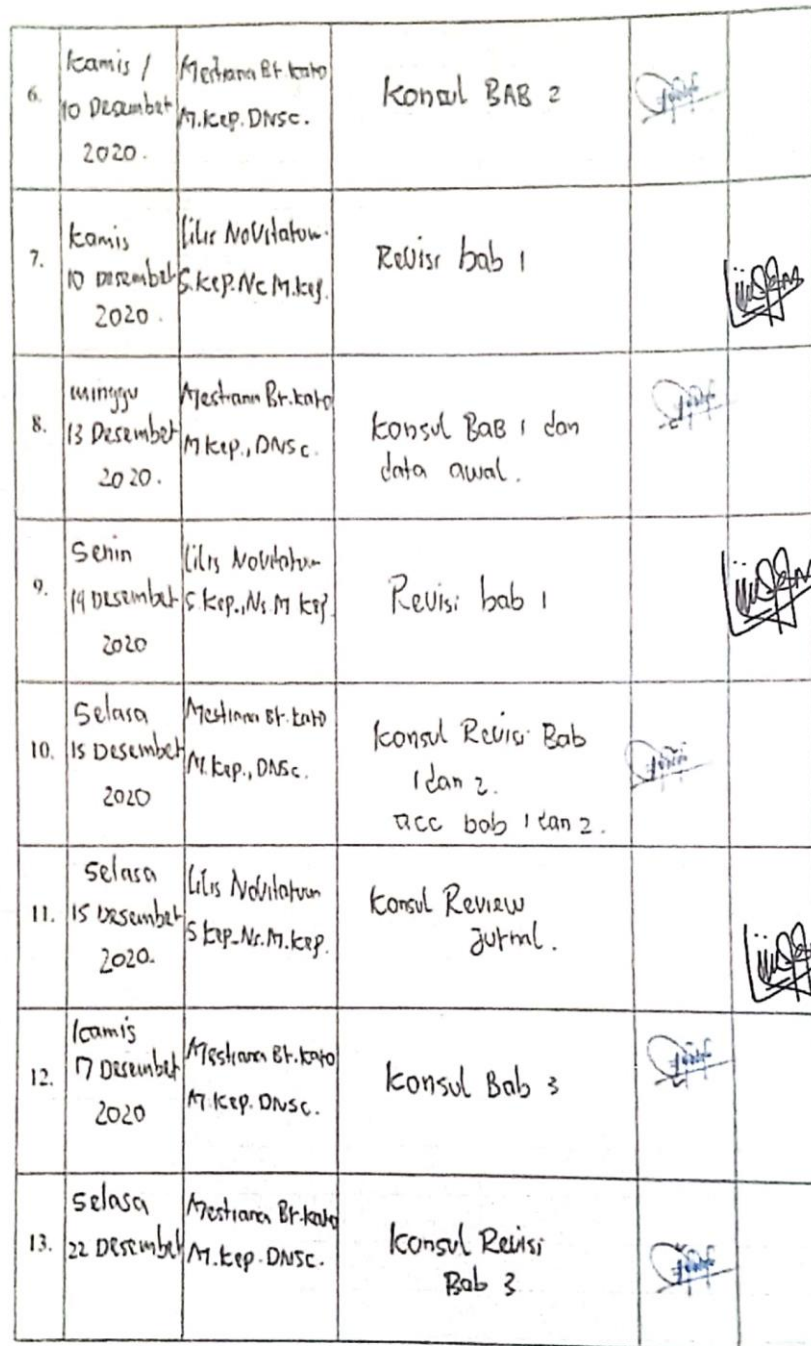 6.
Kamis /
10 Desember
2020.
Mestiana Br. Karo
M.Kep. DNSc.
Konsul BAB 2
7.
Kamis
10 Desember
2020.
Lilis Novitarum
S.Kep. Ns M.Kep.
Revisi bab 1
8.
Minggu
13 Desember
2020.
Mestiana Br. Karo
M Kep., DNSc.
Konsul BaB 1 dan
data awal.
9.
Senin
14 Desember
2020
Lilis Novitarum
S.Kep., Ns. M Kep
Revisi bab 1
10.
Selasa
15 Desember
2020
Mestiana Br. Karo
M.Kep., DNSc.
Konsul Revisi Bab
1 dan 2.
acc bab 1 dan 2.
11.
Selasa
15 Desember
2020.
Lilis Novitarum
S Kep. Ns. M.Kep.
Konsul Review
Jurnal.
12.
Kamis
17 Desember
2020
Mestiana Br. Karo
M.Kep. DNSc.
Konsul Bab 3
13.
Selasa
22 Desember
Mestiana Br. Karo
M.Kep. DNSc.
Konsul Revisi
Bab 3